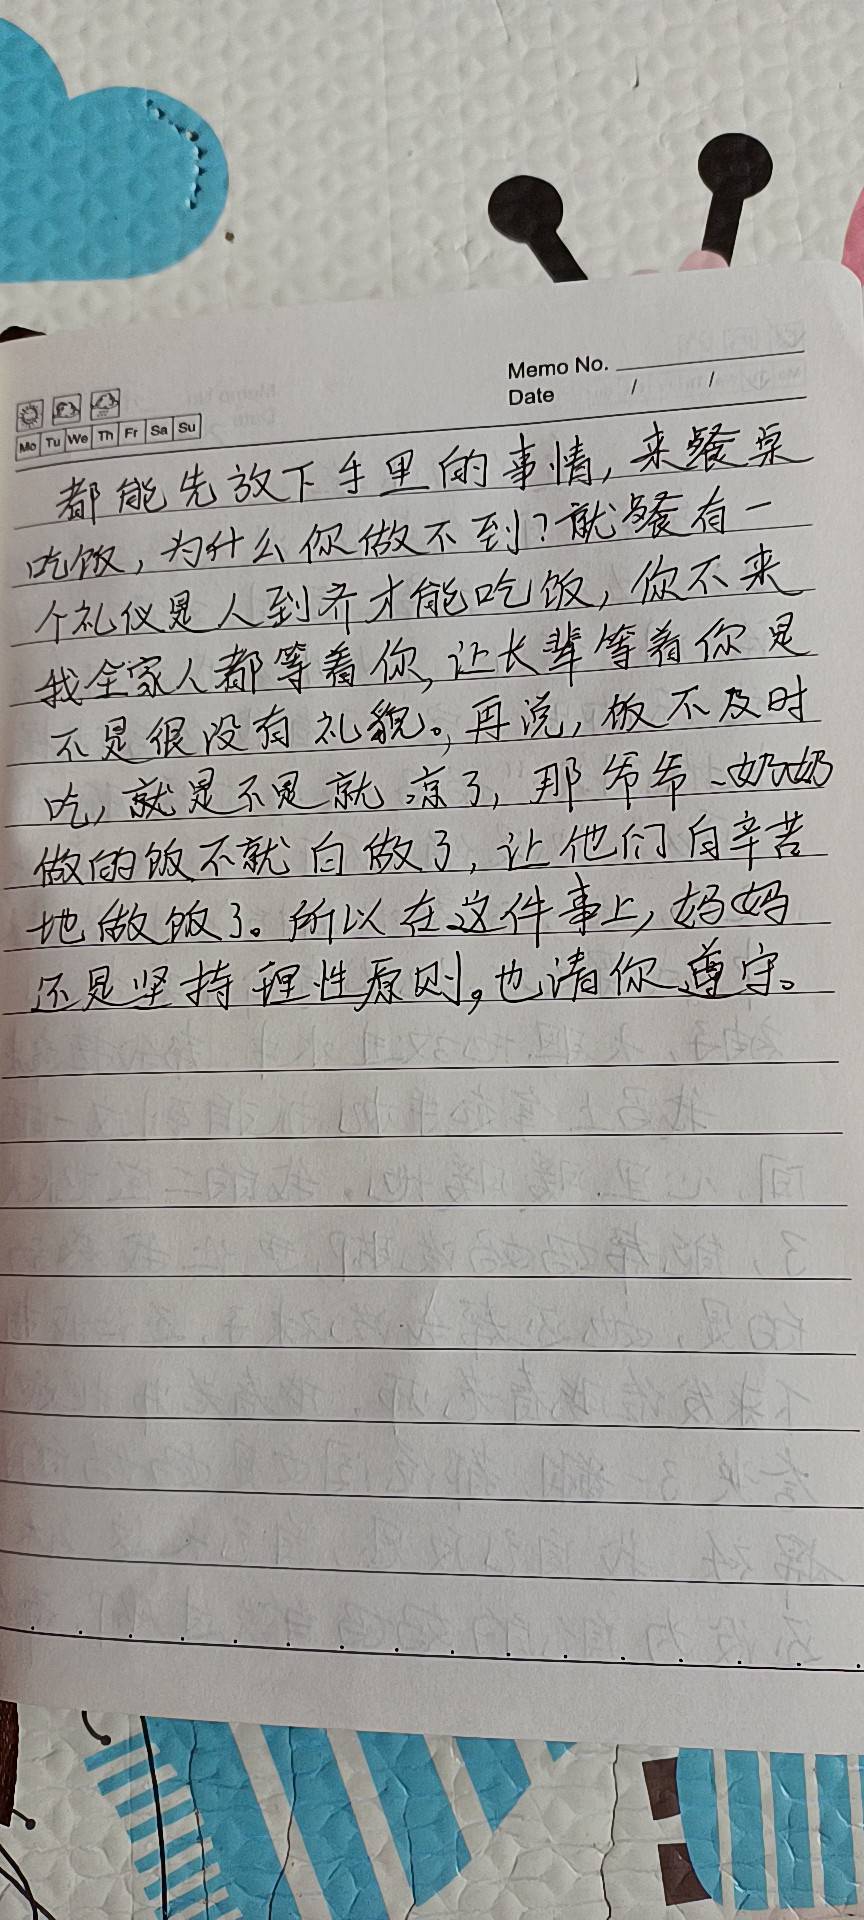 Memo No.
Date / /
Mo Tu We Th Fr Sa Su
都能先放下手里的事情，来餐桌
吃饭，为什么你做不到？就餐有一
个礼仪是人到齐才能吃饭，你不来
我全家人都等着你，让长辈等着你是
不是很没有礼貌。，再说，饭不及时
吃，就是不是就凉了，那爷爷、奶奶
做的饭不就白做了，让他们白辛苦
地做饭了。所以在这件事上，妈妈
还是坚持理性原则，也请你遵守。